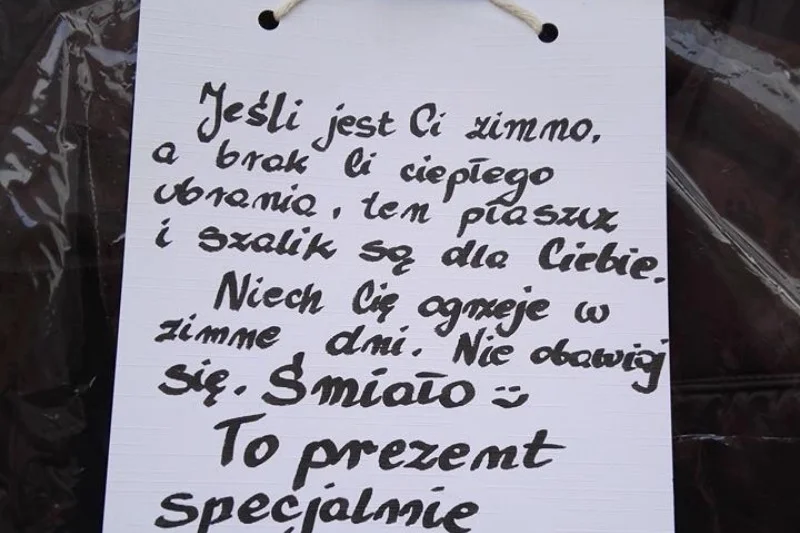 Jeśli jest Ci zimno,
a brak Ci ciepłego
ubrania, ten płaszcz
i szalik są dla Ciebie.
Niech Cię ogrzeje w
zimne dni. Nie obawiaj
się. Śmiało
To prezent
specjalnie